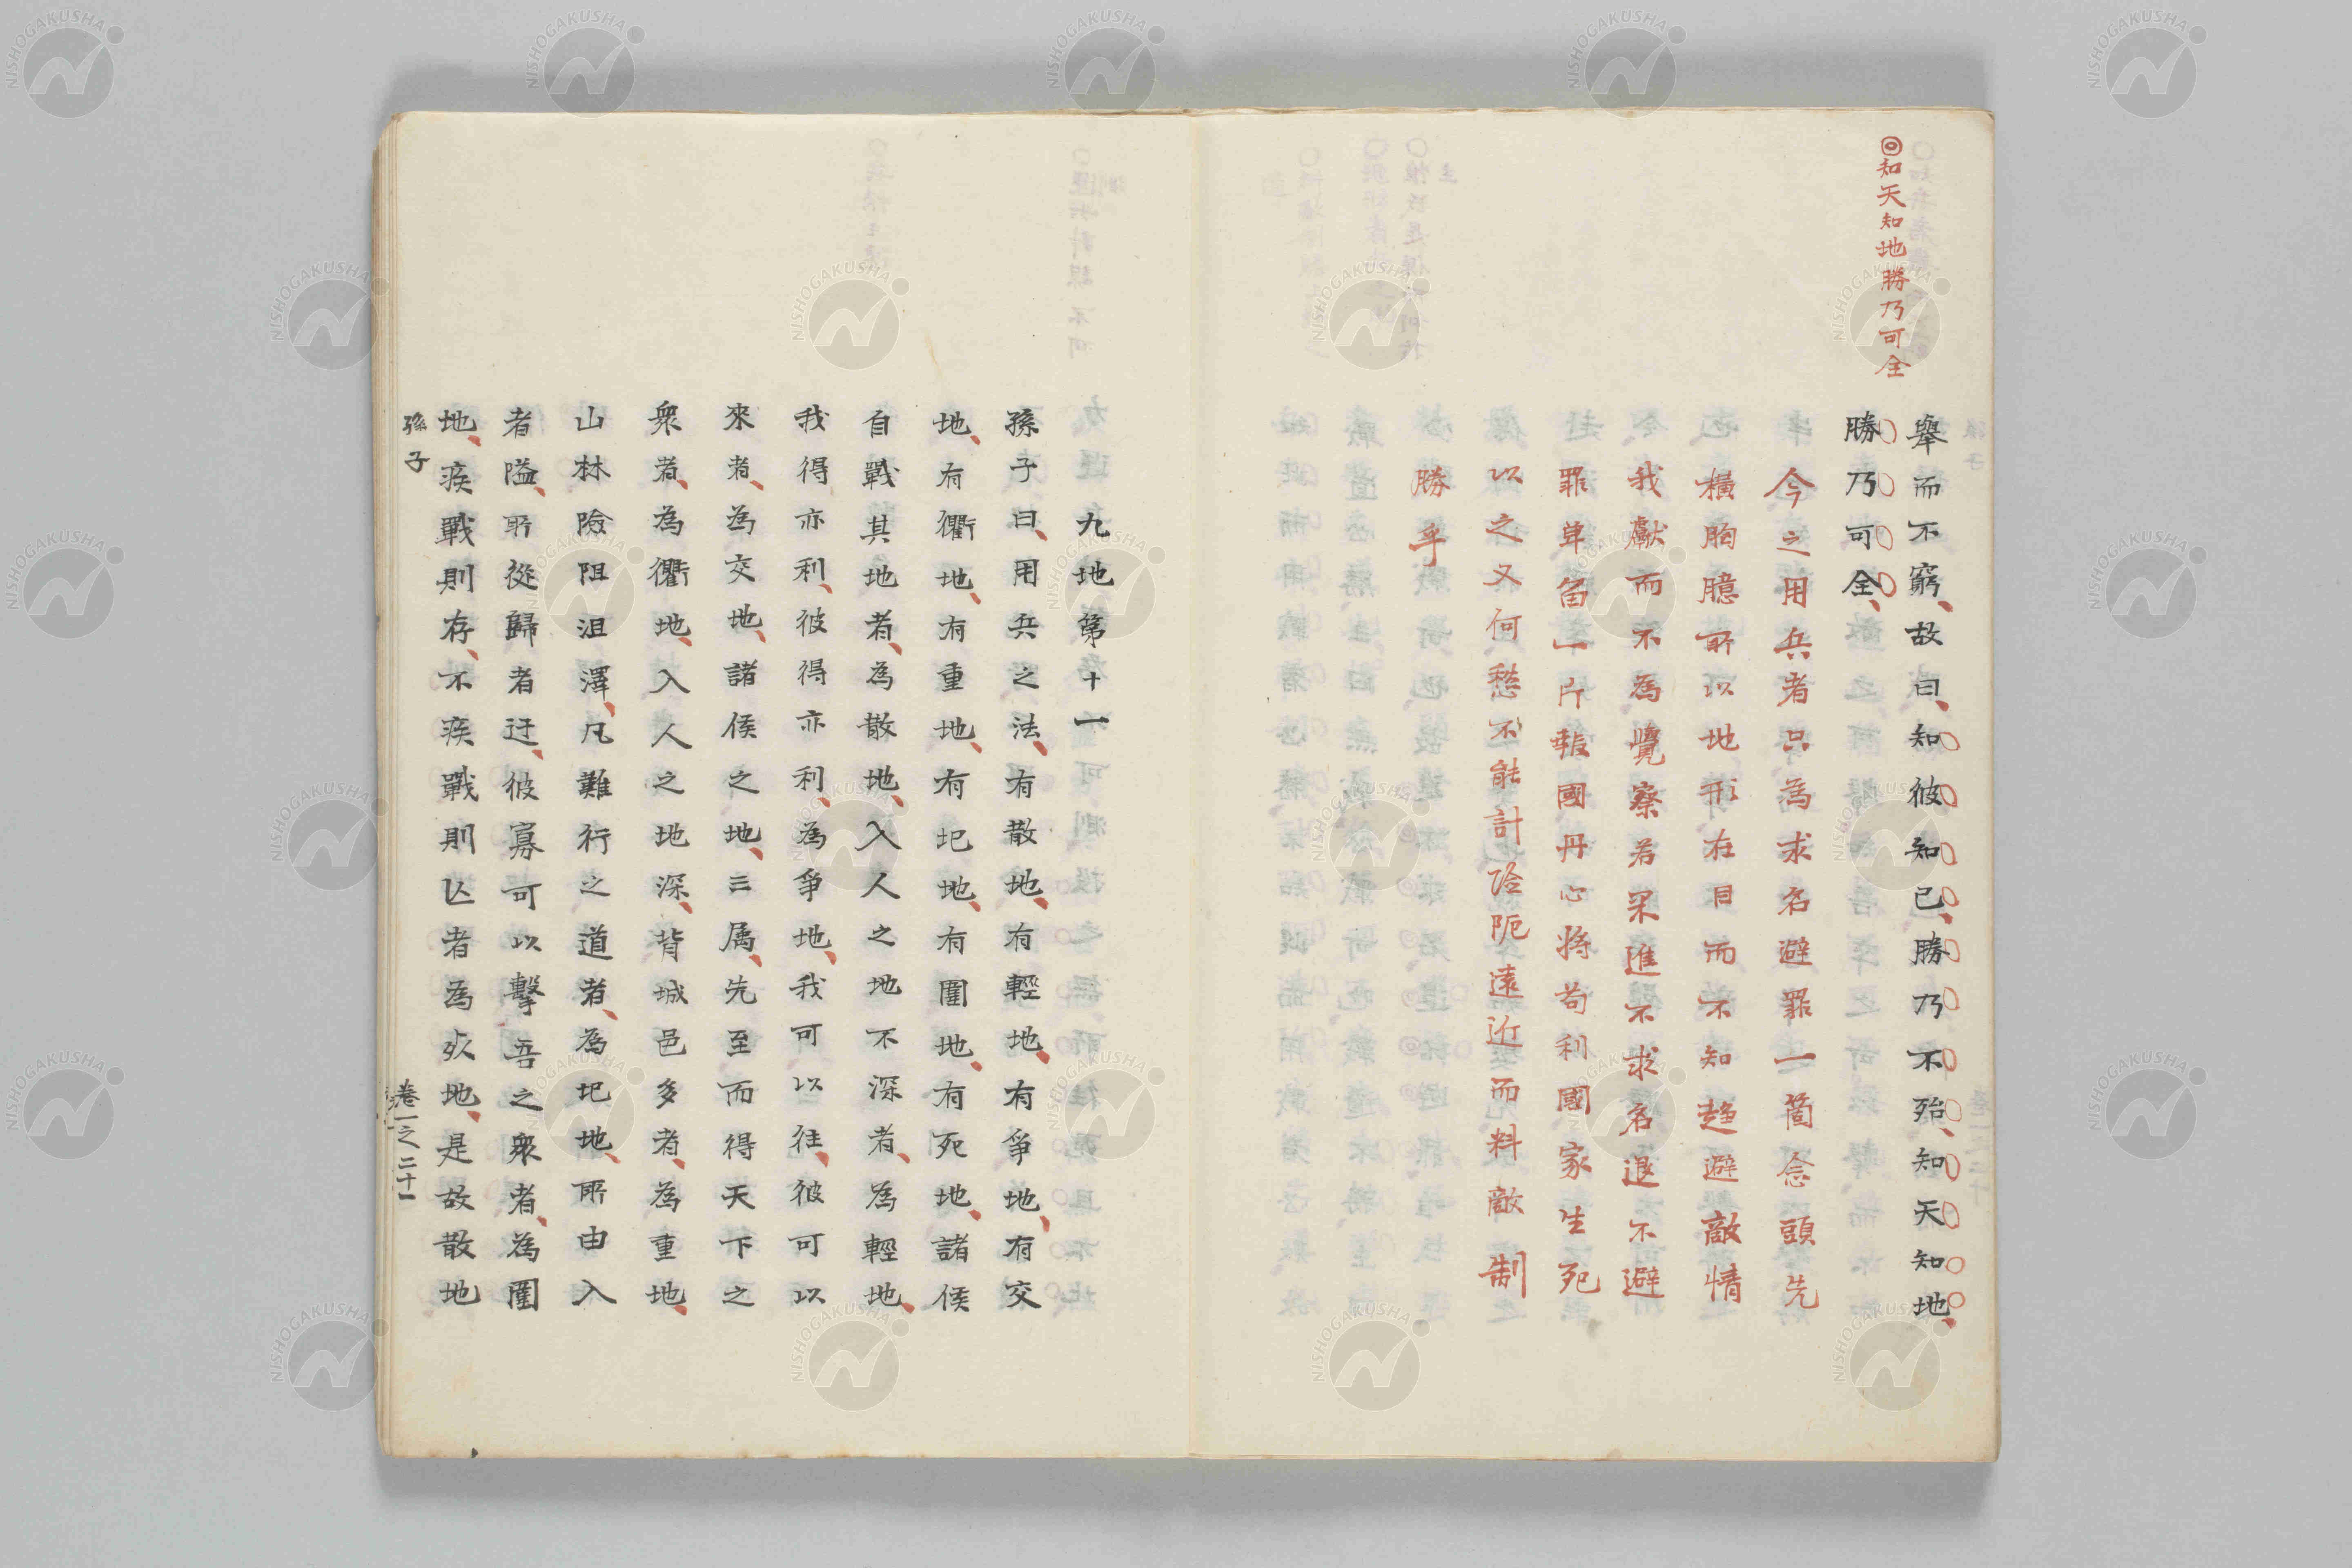 ◎知天知地勝乃可全
舉而不窮、故曰、知彼知己、勝乃不殆、知天知地、
勝乃可全、
今之用兵者只為求名避罪一箇念頭先
橫胸臆所以地形在目而不知趨避敵情
我獻而不為覺察若果進不求名退不避
罪單留一片報國丹心將苟利國家生死
以之又何愁不能計險阨遠近而料敵制
勝乎
九地第十一
孫子曰、用兵之法、有散地、有輕地、有爭地、有交
地、有衢地、有重地、有圯地、有圍地、有死地、諸侯
自戰其地者、為散地、入人之地不深者、為輕地、
我得亦利、彼得亦利、為爭地、我可以往、彼可以
來者、為交地、諸侯之地、三属、先至而得天下之
衆者、為衢地、入人之地深、背城邑多者、為重地、
山林險阻沮澤、凡難行之道者、為圯地、所由入
者隘、所從歸者迂、彼寡可以擊吾之衆者、為圍
地、疾戰則存、不疾戰則亾者為死地、是故散地
孫子
卷一之二十一
NISHOGAKUSHA